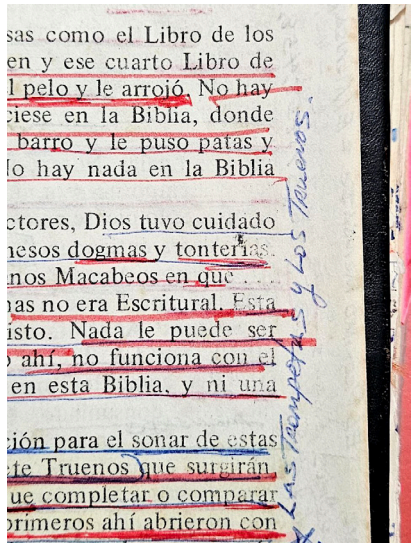 sas como el Libro de los
en y ese cuarto Libro de
l pelo y le arrojó. No hay
ciese en la Biblia, donde
barro y le puso patas y
No hay nada en la Biblia
ctores, Dios tuvo cuidado
nesos dogmas y tonterías.
nos Macabeos en que . . . .
nas no era Escritural. Esta
isto. Nada le puede ser
o ahí, no funciona con el
en esta Biblia, y ni una
ción para el sonar de estas
ete Truenos que surgirán
ue completar o comparar
primeros ahí abrieron con
Las Trompetas y Los Truenos.